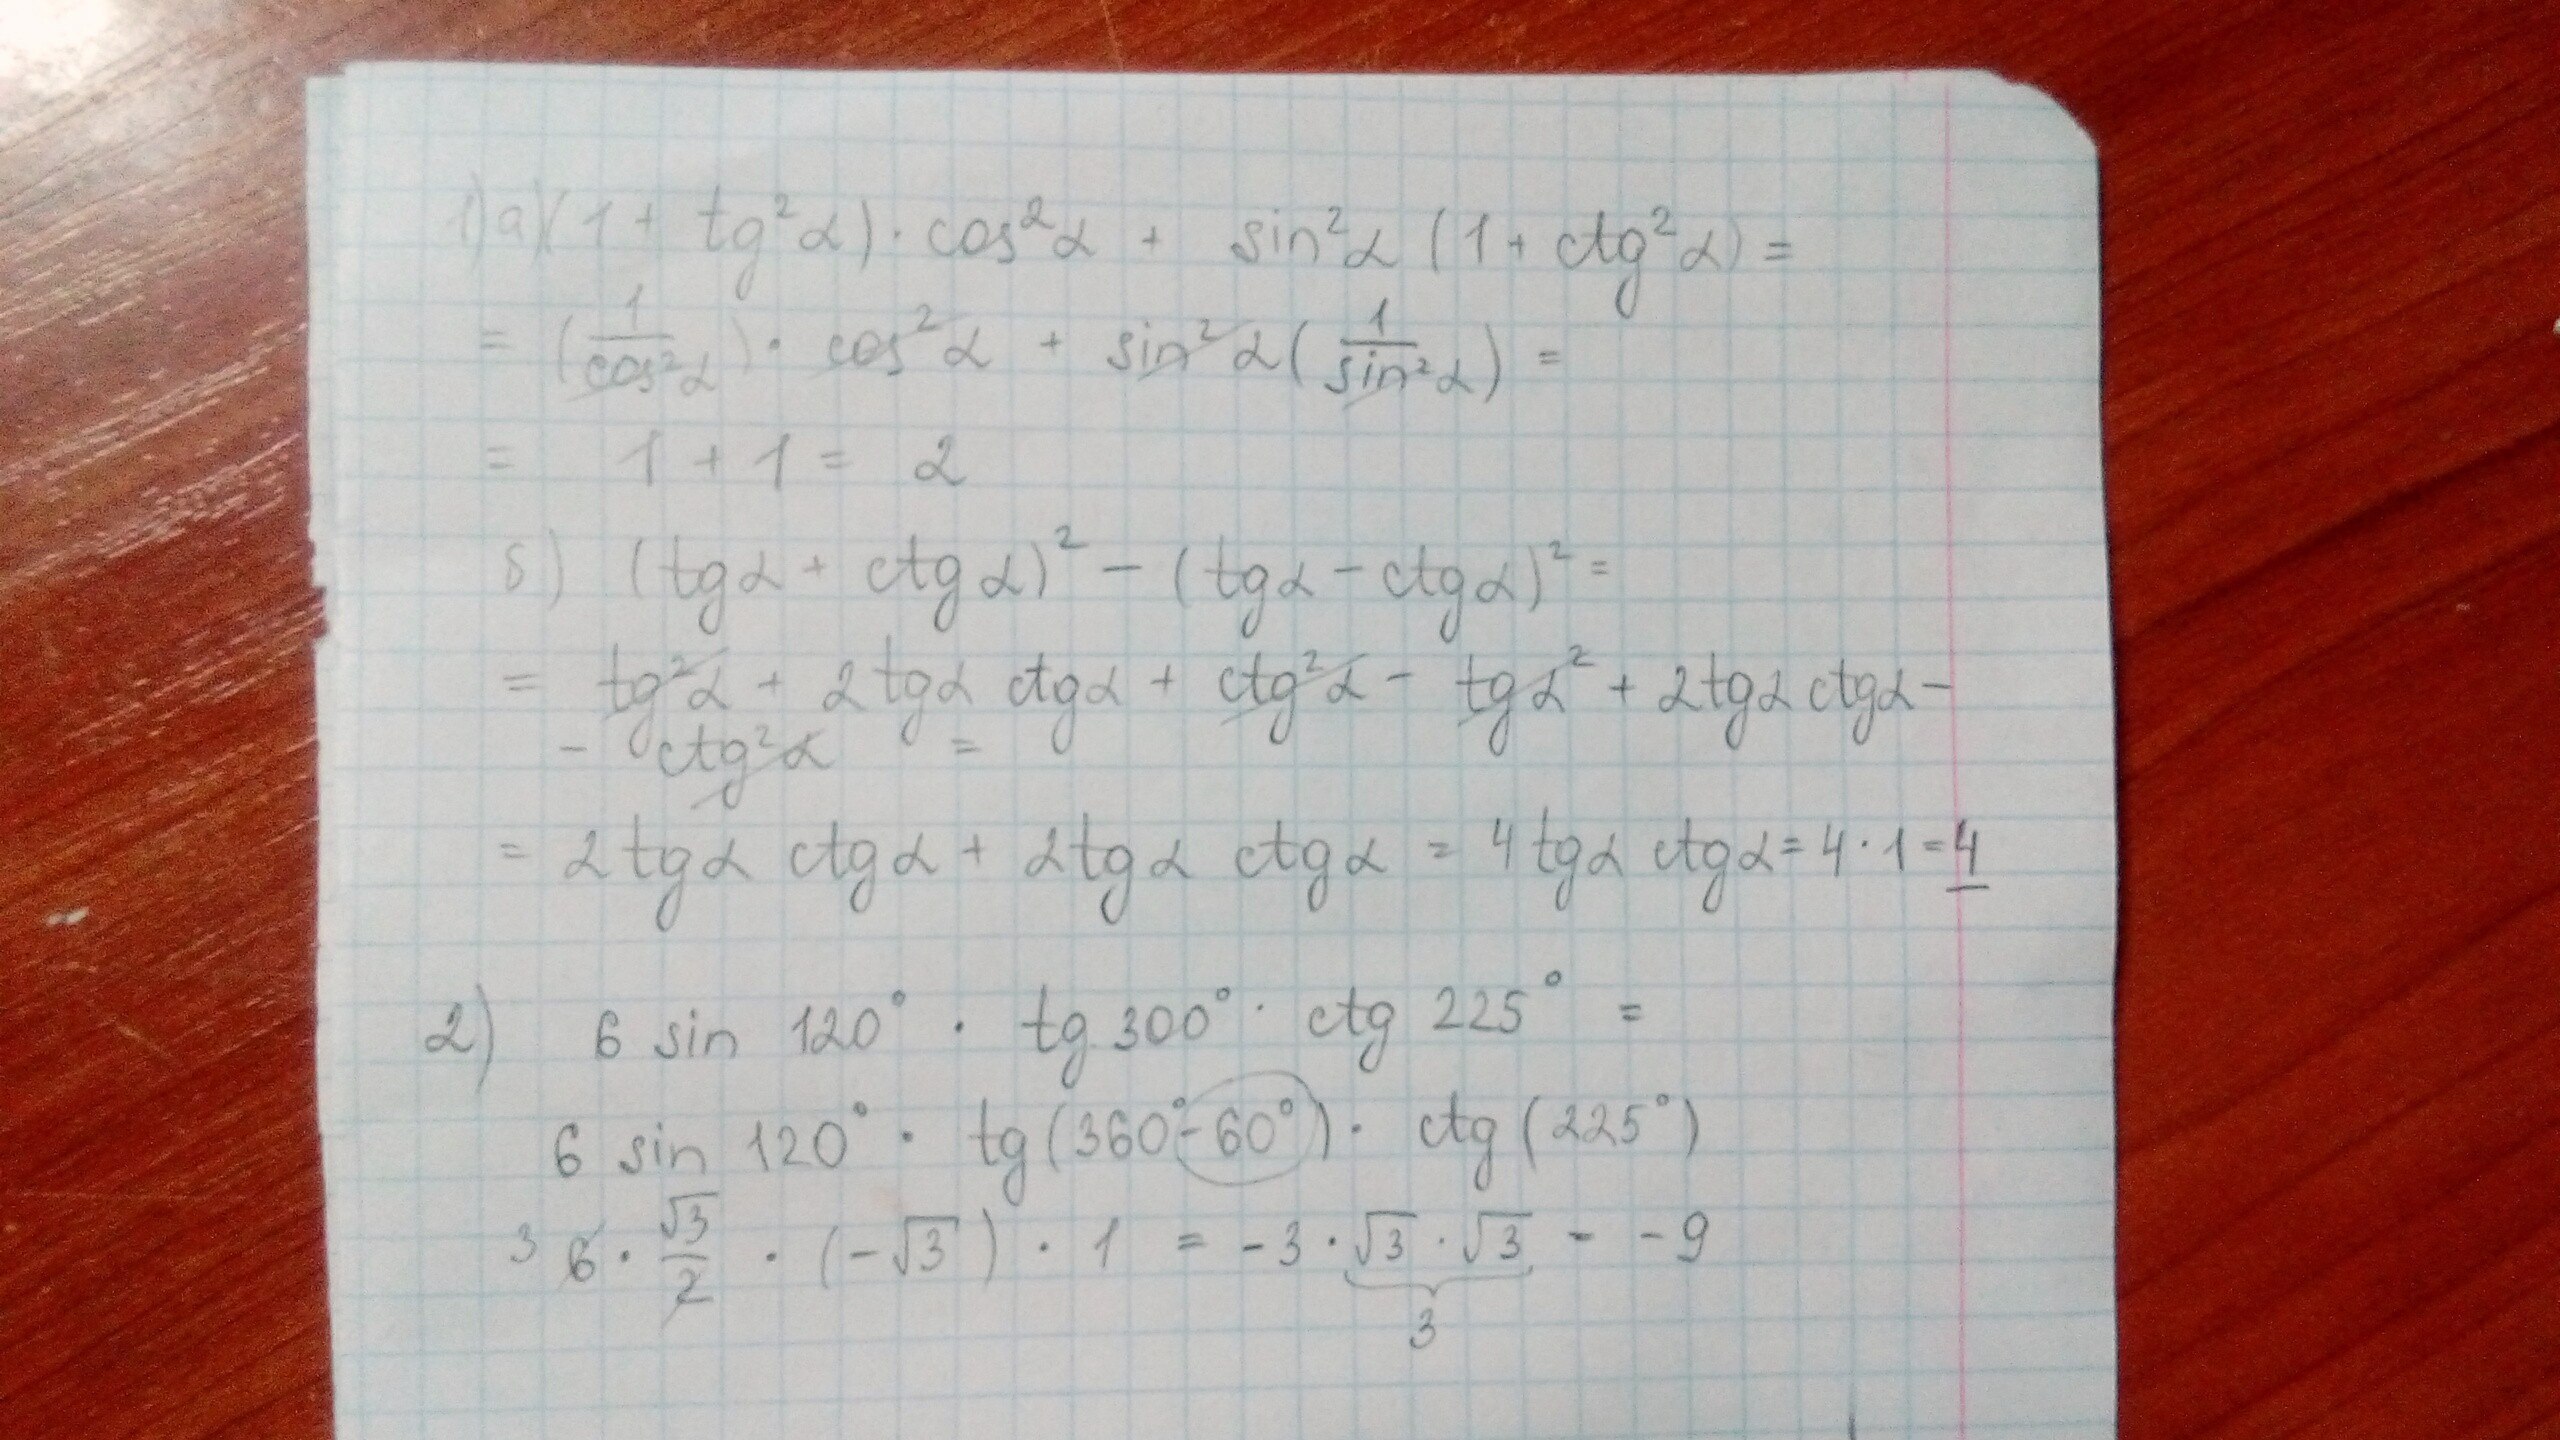 1) а) (1 + tg²α) · cos²α + sin²α (1 + ctg²α) =
= (1/cos²α) · cos²α + sin²α (1/sin²α) =
= 1 + 1 = 2
б) (tgα + ctgα)² − (tgα − ctgα)² =
= tg²α + 2tgα ctgα + ctg²α − tgα² + 2tgα ctgα −
− ctg²α =
= 2tgα ctgα + 2tgα ctgα = 4tgα ctgα = 4 · 1 = 4
2) 6 sin 120° · tg 300° · ctg 225° =
6 sin 120° · tg (360° − 60°) · ctg (225°)
3 6 · √3/2 · (−√3) · 1 = −3 · √3 · √3 = −9
3